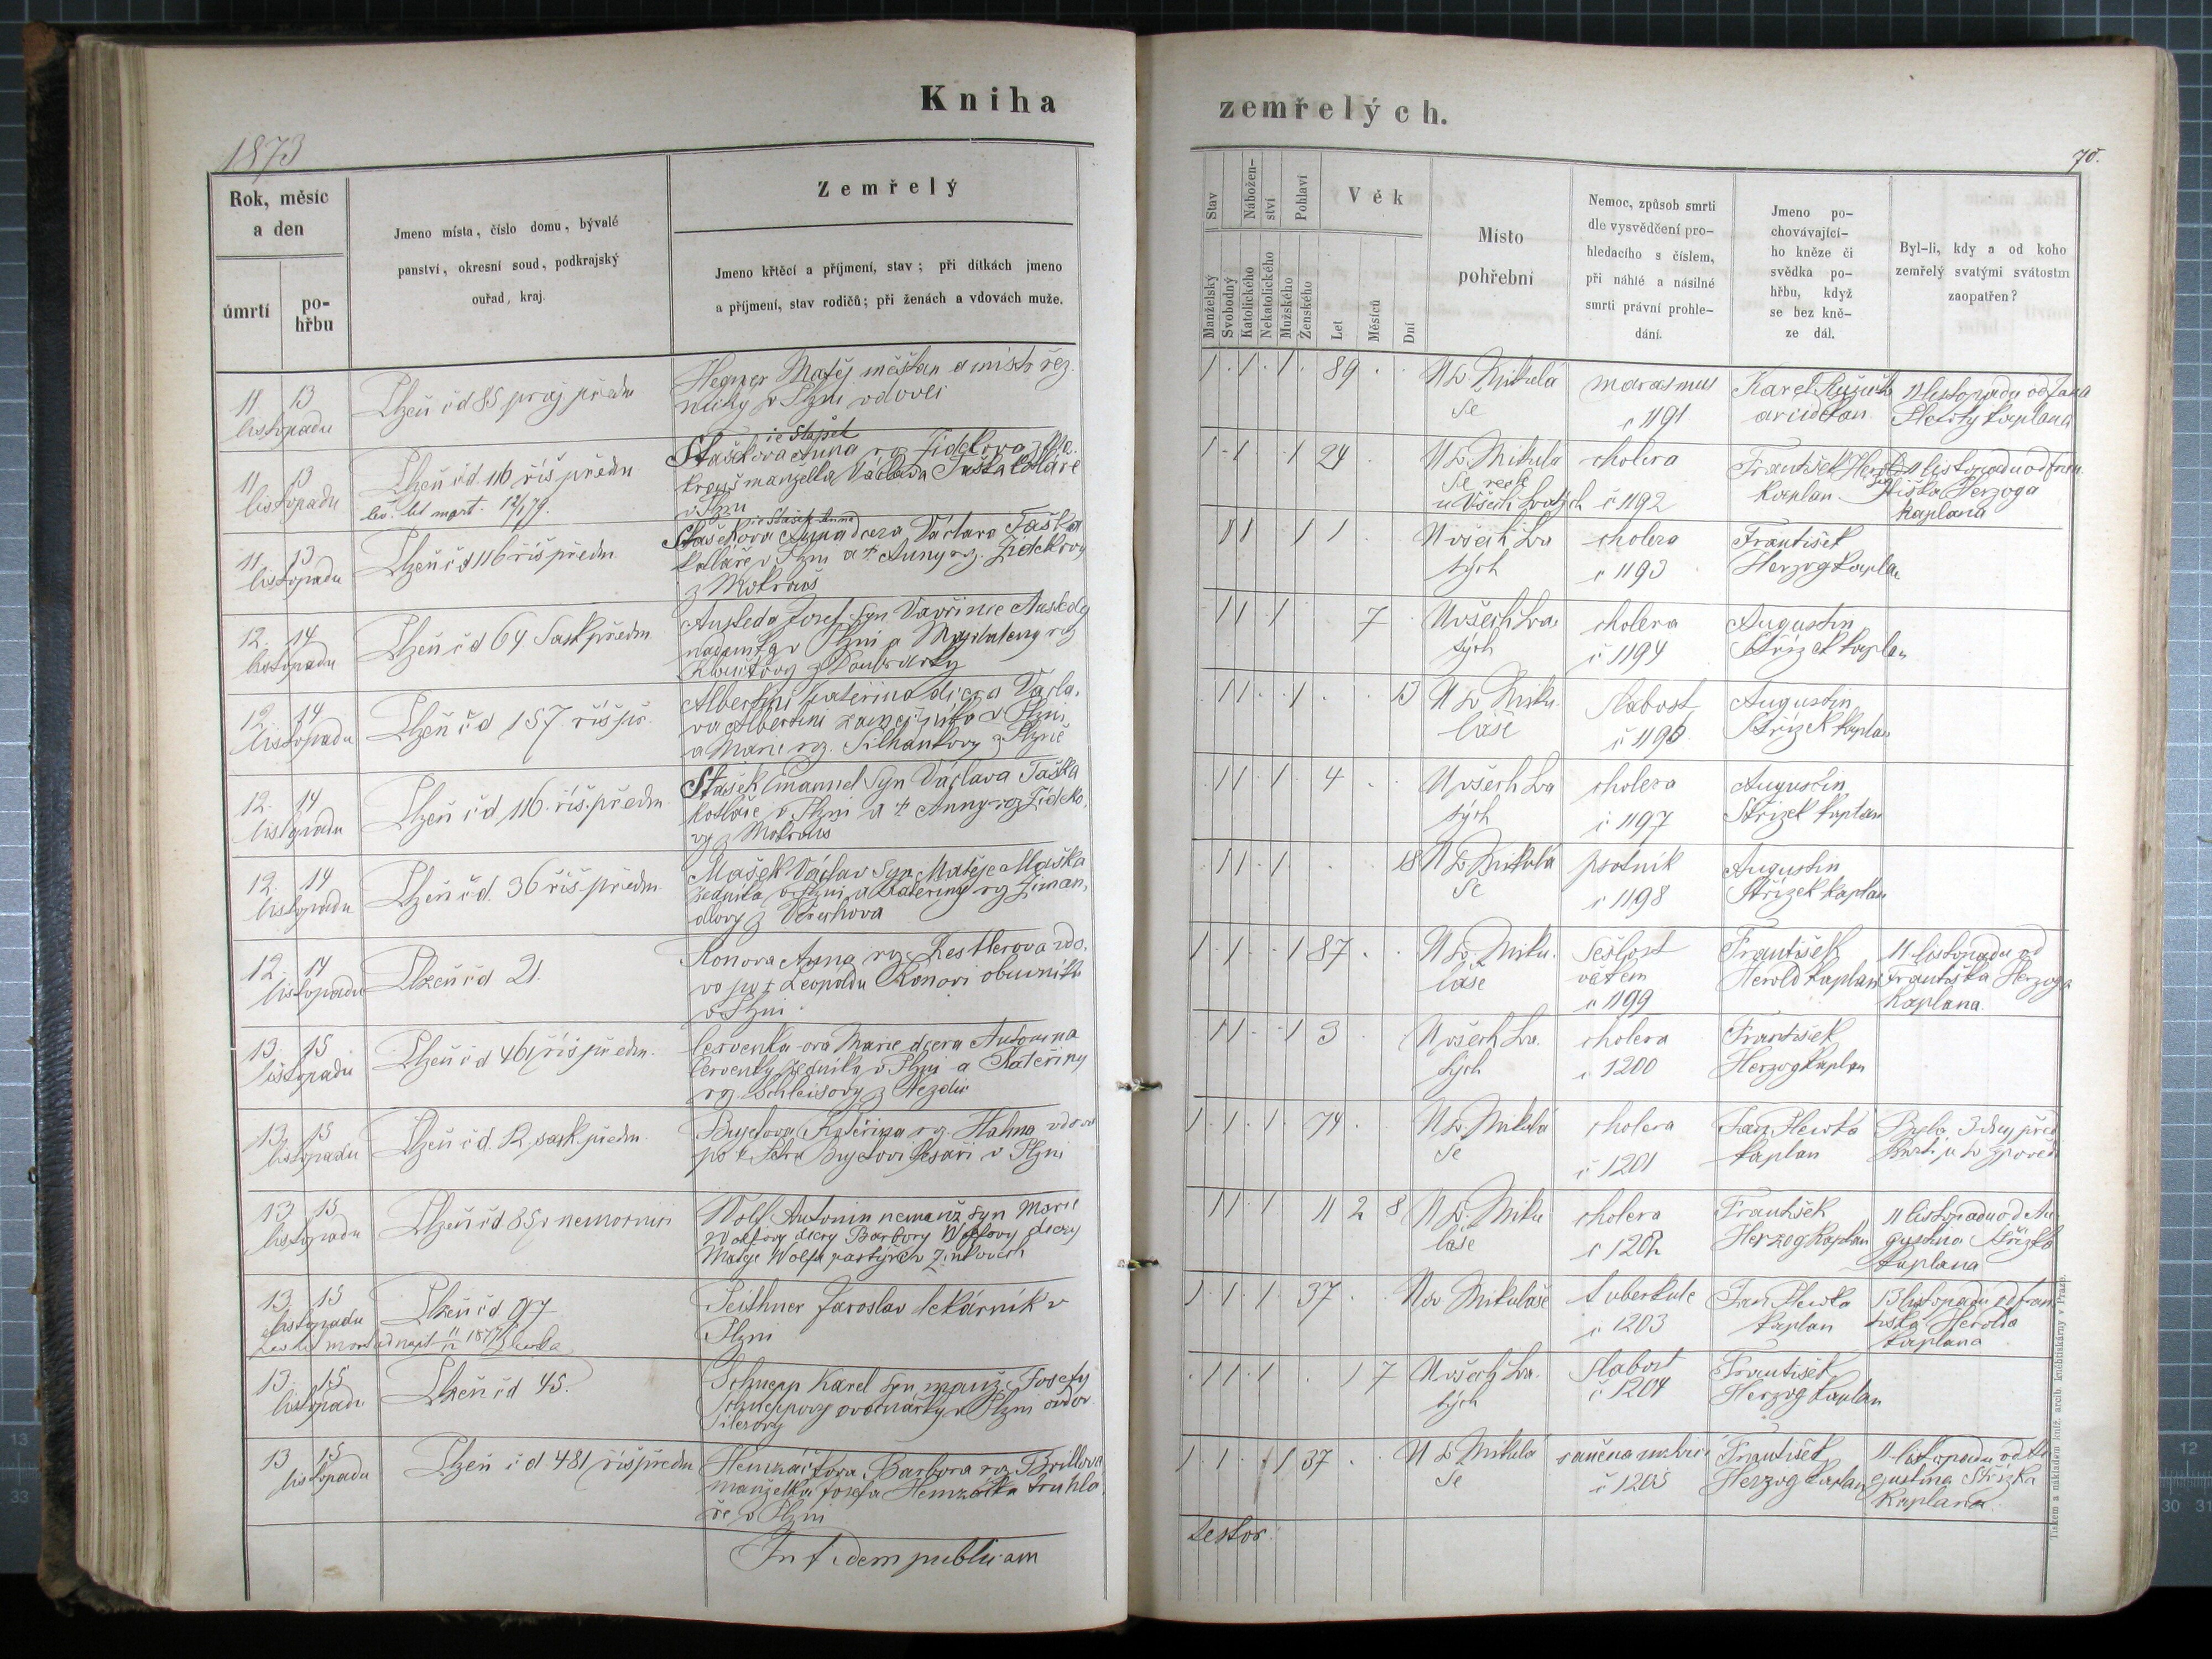 Kniha
zemřelých.
1873
70.
Rok, měsíc
a den
úmrtí
po-
hřbu
Jmeno místa, číslo domu, bývalé
panství, okresní soud, podkrajský
ouřad, kraj.
Zemřelý
Jmeno křtěcí a příjmení, stav; při dítkách jmeno
a příjmení, stav rodičů; při ženách a vdovách muže.
Stav
Nábožen-
ství
Pohlaví
Věk
Manželský
Svobodný
Katolického
Nekatolického
Mužského
Ženského
Let
Měsíců
Dní
Místo
pohřební
Nemoc, způsob smrti
dle vysvědčení pro-
hledacího s číslem,
při náhlé a násilné
smrti právní prohle-
dání.
Jmeno po-
chovávající-
ho kněze či
svědka po-
hřbu, když
se bez kně-
ze dál.
Byl-li, kdy a od koho
zemřelý svatými svátostm
zaopatřen?
11 13
listopadu
Plzeň čd 85 praž předm
Hegner Matěj měšťan a mistr řez.
nický v Plzni vdovec
1 1 1 89
U sv. Mikulá
še
marasmus
č 1191
Karel
arciděkan
11 listopadu od Jana
Hlevky kaplana
11 13
listopadu
Plzeň čd 116 říš předm
Anna rz. Židkova z Mo.
manželka Václava Taška kotláře
v Plzni
1 1 1 24
U sv. Mikulá
še recte
u Všech Svatých
cholera
č 1192
František
kaplan
11 listopadu od Fran
tiška Herzoga
kaplana
11 13
listopadu
Plzeň čd 116 říš předm
Stašekova Anna dcera Václava Taška
kotláře v Plzni a † Anny rz. Židkovy
z Mokrouš
1 1 1 1
U všech Sva
tých
cholera
č 1193
František
Herzog kaplan
12. 14
listopadu
Plzeň čd 64 Sask předm
Josef syn Vavřince
v Plzni a Magdaleny rz
z Doubravky
1 1 1 7
U všech Sva.
tých
cholera
č 1194
Augustin
Střízek kaplan
12. 14
listopadu
Plzeň čd 157 říš př.
Albertini Kateřina dcera Václa.
va Albertini v Plzni
a Marie rz. Silhankovy z Plzně
1 1 1 13
U sv. Miku
láše
slabost
č 1196
Augustin
Střízek kaplan
12. 14
listopadu
Plzeň čd 116. říš. předm
Stašek Emanuel syn Václava Taška
kotláře v Plzni a † Anny rz Židko.
vy z Mokrouš
1 1 1 4
U všech Sva
tých
cholera
č 1197
Augustin
Střízek kaplan
12. 14
listopadu
Plzeň čd. 36 říš předm.
Mašek Václav syn Matěje Maška
zedníka v Plzni a Kateřiny rz Ziman,
dlovy z
1 1 1 18
U sv. Mikulá
še
psotník
č 1198
Augustin
Střízek kaplan
12. 14
listopadu
Plzeň čd 21.
Konora Anna rz. Kestlerova vdo.
va po † Leopoldu Konori obuvníku
v Plzni
1 1 1 87
U sv. Miku.
láše
sešlost
věkem
č 1199
František
Herold kaplan
11 listopadu od
Františka Herzoga
kaplana
13. 15
listopadu
Plzeň čd 461 říš předm.
Červenka-ova Marie dcera Antonína
Červenky zedníka v Plzni a Kateřiny
rz. Schleisovy z Nezdic
1 1 1 3
U všech Sva.
tých
cholera
č 1200
František
Herzog kaplan
13 15
listopadu
Plzeň čd. 12. sask. předm
Kateřina rz. Hahna vdova
po † Petru v Plzni
1 1 1 74
U sv Mikulá
še
cholera
č 1201
Jan Hlewka
kaplan
Byla 3 dny před
13 15
listopadu
Plzeň čd v nemocnici
Wolf Antonin nemanž syn Marie
Wolfovy dcery Barbory Wolfovy dcery
Matěje Wolfa
1 1 1 11 2 8
U sv. Miku
láše
cholera
č 1202
František
Herzog kaplan
11 listopadu od Au
gustina Střízka
kaplana
13 15
listopadu
Plzeň čd 97
Peithner Jaroslav lekárník v
Plzni
1 1 1 37
U sv Mikuláše
tuberkule
č 1203
Jan Hlewka
kaplan
13 listopadu od Fran
tiška Herolda
kaplana
13. 15
listopadu
Plzeň čd 45.
Schnepp Karel syn manž. Josefy
Schneppovy v Plzni
1 1 1 1 7
U všech Sva.
tých
slabost
č 1204
František
Herzog kaplan
13 15
listopadu
Plzeň čd 481 říš předm
Barbora rz. Brillova
manželka Josefa truhlá
ře v Plzni
1 1 1 37
U sv Mikulá
še
č 1205
František
Herzog kaplan
11 listopadu od Au
gustina Střízka
kaplana.
In fidem publicam
testor.
Tiskem a nákladem kníž. arcib. knihtiskárny v Praze.